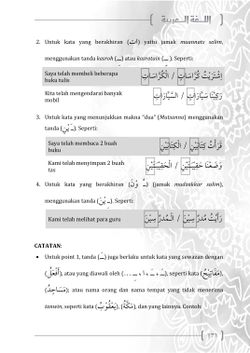 اللغة العربية
2. Untuk kata yang berakhiran (ات) yaitu jamak muannats salim,
menggunakan tanda kasroh (ـِ) atau kasrotain (ـٍ). Seperti:
Saya telah membeli beberapa buku tulis
اِشْتَرَيْتُ كُرَّاسَاتٍ / الْكُرَّاسَاتِ
Kita telah mengendarai banyak mobil
رَكِبْنَا سَيَّارَاتٍ / السَّيَّارَاتِ
3. Untuk kata yang menunjukkan makna "dua" (Mutsanna) menggunakan
tanda (ـَ يْنِ). Seperti:
Saya telah membaca 2 buah buku
قَرَأْتُ كِتَابَيْنِ / الْكِتَابَيْنِ
Kami telah menyimpan 2 buah tas
وَضَعْنَا حَقِيْبَتَيْنِ / الْحَقِيْبَتَيْنِ
4. Untuk kata yang berakhiran (ـُ وْنَ) (jamak mudzakkar salim),
menggunakan tanda (ـِ يْنَ). Seperti:
Kami telah melihat para guru
رَأَيْتُ مُدَرِّسِيْنَ / الْمُدَرِّسِيْنَ
CATATAN:
• Untuk point 1, tanda (ـَ) juga berlaku untuk kata yang sewazan dengan
(أَفْعَلُ); atau yang diawali oleh ( ), seperti kata (مَفَاتِيْحُ),
(مَسَاجِدُ); atau nama orang dan nama tempat yang tidak menerima
tanwin, seperti kata (يَعْقُوْبُ), (مَكَّةُ), dan yang lainnya. Contoh: